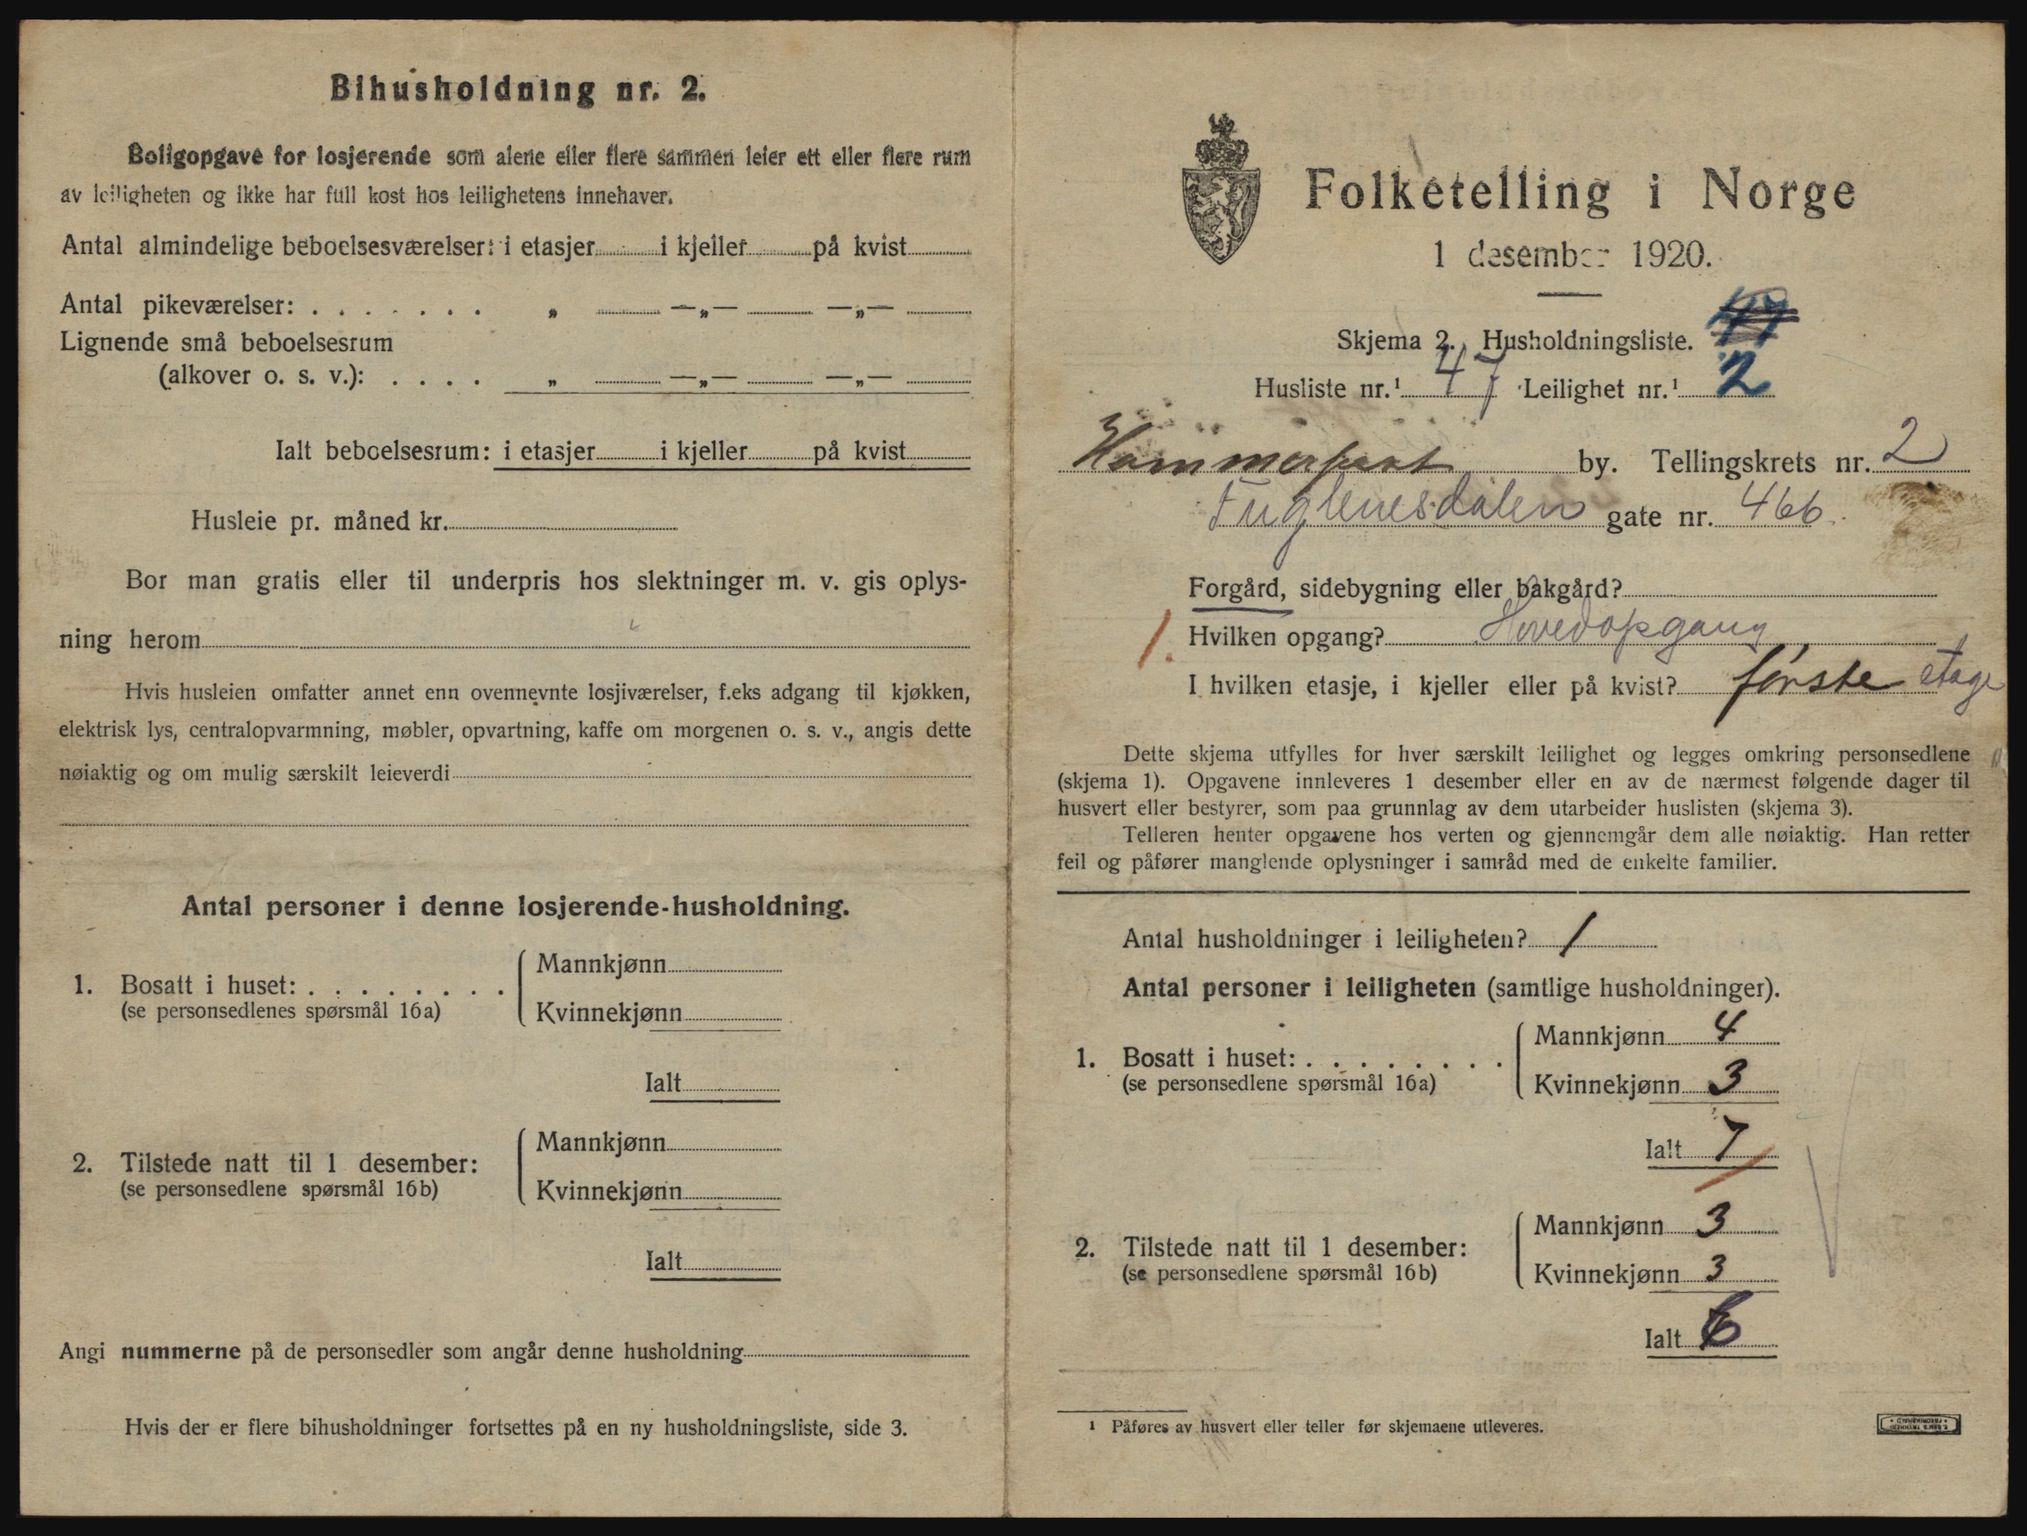 Bihusholdning nr. 2.
Boligopgave for losjerende som alene eller flere sammen leier ett eller flere rum
av leiligheten og ikke har full kost hos leilighetens innehaver.
Antal almindelige beboelsesværelser: i etasjer i kjeller på kvist
Antal pikeværelser: . . . . . . . „ —„— —„—
Lignende små beboelsesrum
(alkover o. s. v.): . . . . „ —„— —„—
Ialt beboelsesrum: i etasjer i kjeller på kvist
Husleie pr. måned kr.
Bor man gratis eller til underpris hos slektninger m. v. gis oplys-
ning herom
Hvis husleien omfatter annet enn ovennevnte losjiværelser, f.eks adgang til kjøkken,
elektrisk lys, centralopvarmning, møbler, opvartning, kaffe om morgenen o. s. v., angis dette
nøiaktig og om mulig særskilt leieverdi
Antal personer i denne losjerende-husholdning.
1. Bosatt i huset: . . . . . . . .
(se personsedlenes spørsmål 16a)
Mannkjønn
Kvinnekjønn
Ialt
2. Tilstede natt til 1 desember:
(se personsedlene spørsmål 16b)
Mannkjønn
Kvinnekjønn
Ialt
Angi nummerne på de personsedler som angår denne husholdning
Hvis der er flere bihusholdninger fortsettes på en ny husholdningsliste, side 3.
Folketelling i Norge
1 desember 1920.
Skjema 2. Husholdningsliste.
Husliste nr.¹ 47 Leilighet nr.¹ 2
Hammerfest by. Tellingskrets nr. 2
Fuglenesdalen gate nr. 466
Forgård, sidebygning eller bakgård?
1. Hvilken opgang? Hovedopgang
I hvilken etasje, i kjeller eller på kvist? første etage
Dette skjema utfylles for hver særskilt leilighet og legges omkring personsedlene
(skjema 1). Opgavene innleveres 1 desember eller en av de nærmest følgende dager til
husvert eller bestyrer, som paa grunnlag av dem utarbeider huslisten (skjema 3).
Telleren henter opgavene hos verten og gjennemgår dem alle nøiaktig. Han retter
feil og påfører manglende oplysninger i samråd med de enkelte familier.
Antal husholdninger i leiligheten? 1
Antal personer i leiligheten (samtlige husholdninger).
1. Bosatt i huset: . . . . . . . .
(se personsedlene spørsmål 16a)
Mannkjønn 4
Kvinnekjønn 3
Ialt 7
2. Tilstede natt til 1 desember:
(se personsedlene spørsmål 16b)
Mannkjønn 3
Kvinnekjønn 3
Ialt 6
¹ Påføres av husvert eller teller før skjemaene utleveres.